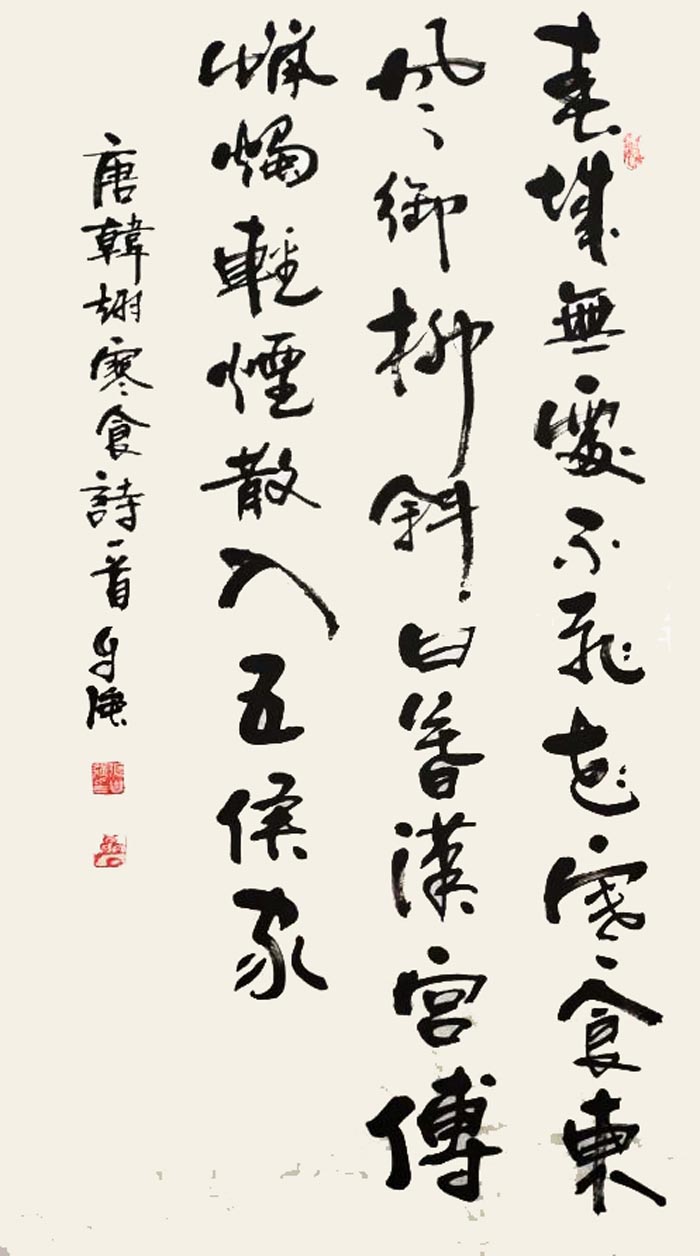 春城無處不飛花寒食東
風御柳斜日暮漢宮傳
蠟燭輕煙散入五侯家
唐韓翃寒食詩一首